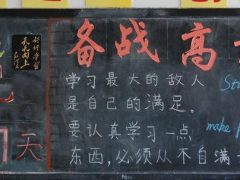 备战高
好好学习
天天向上
学习最大的敌人
是自己的满足。
要认真学习一点
东西,必须从不自满
天
St
make